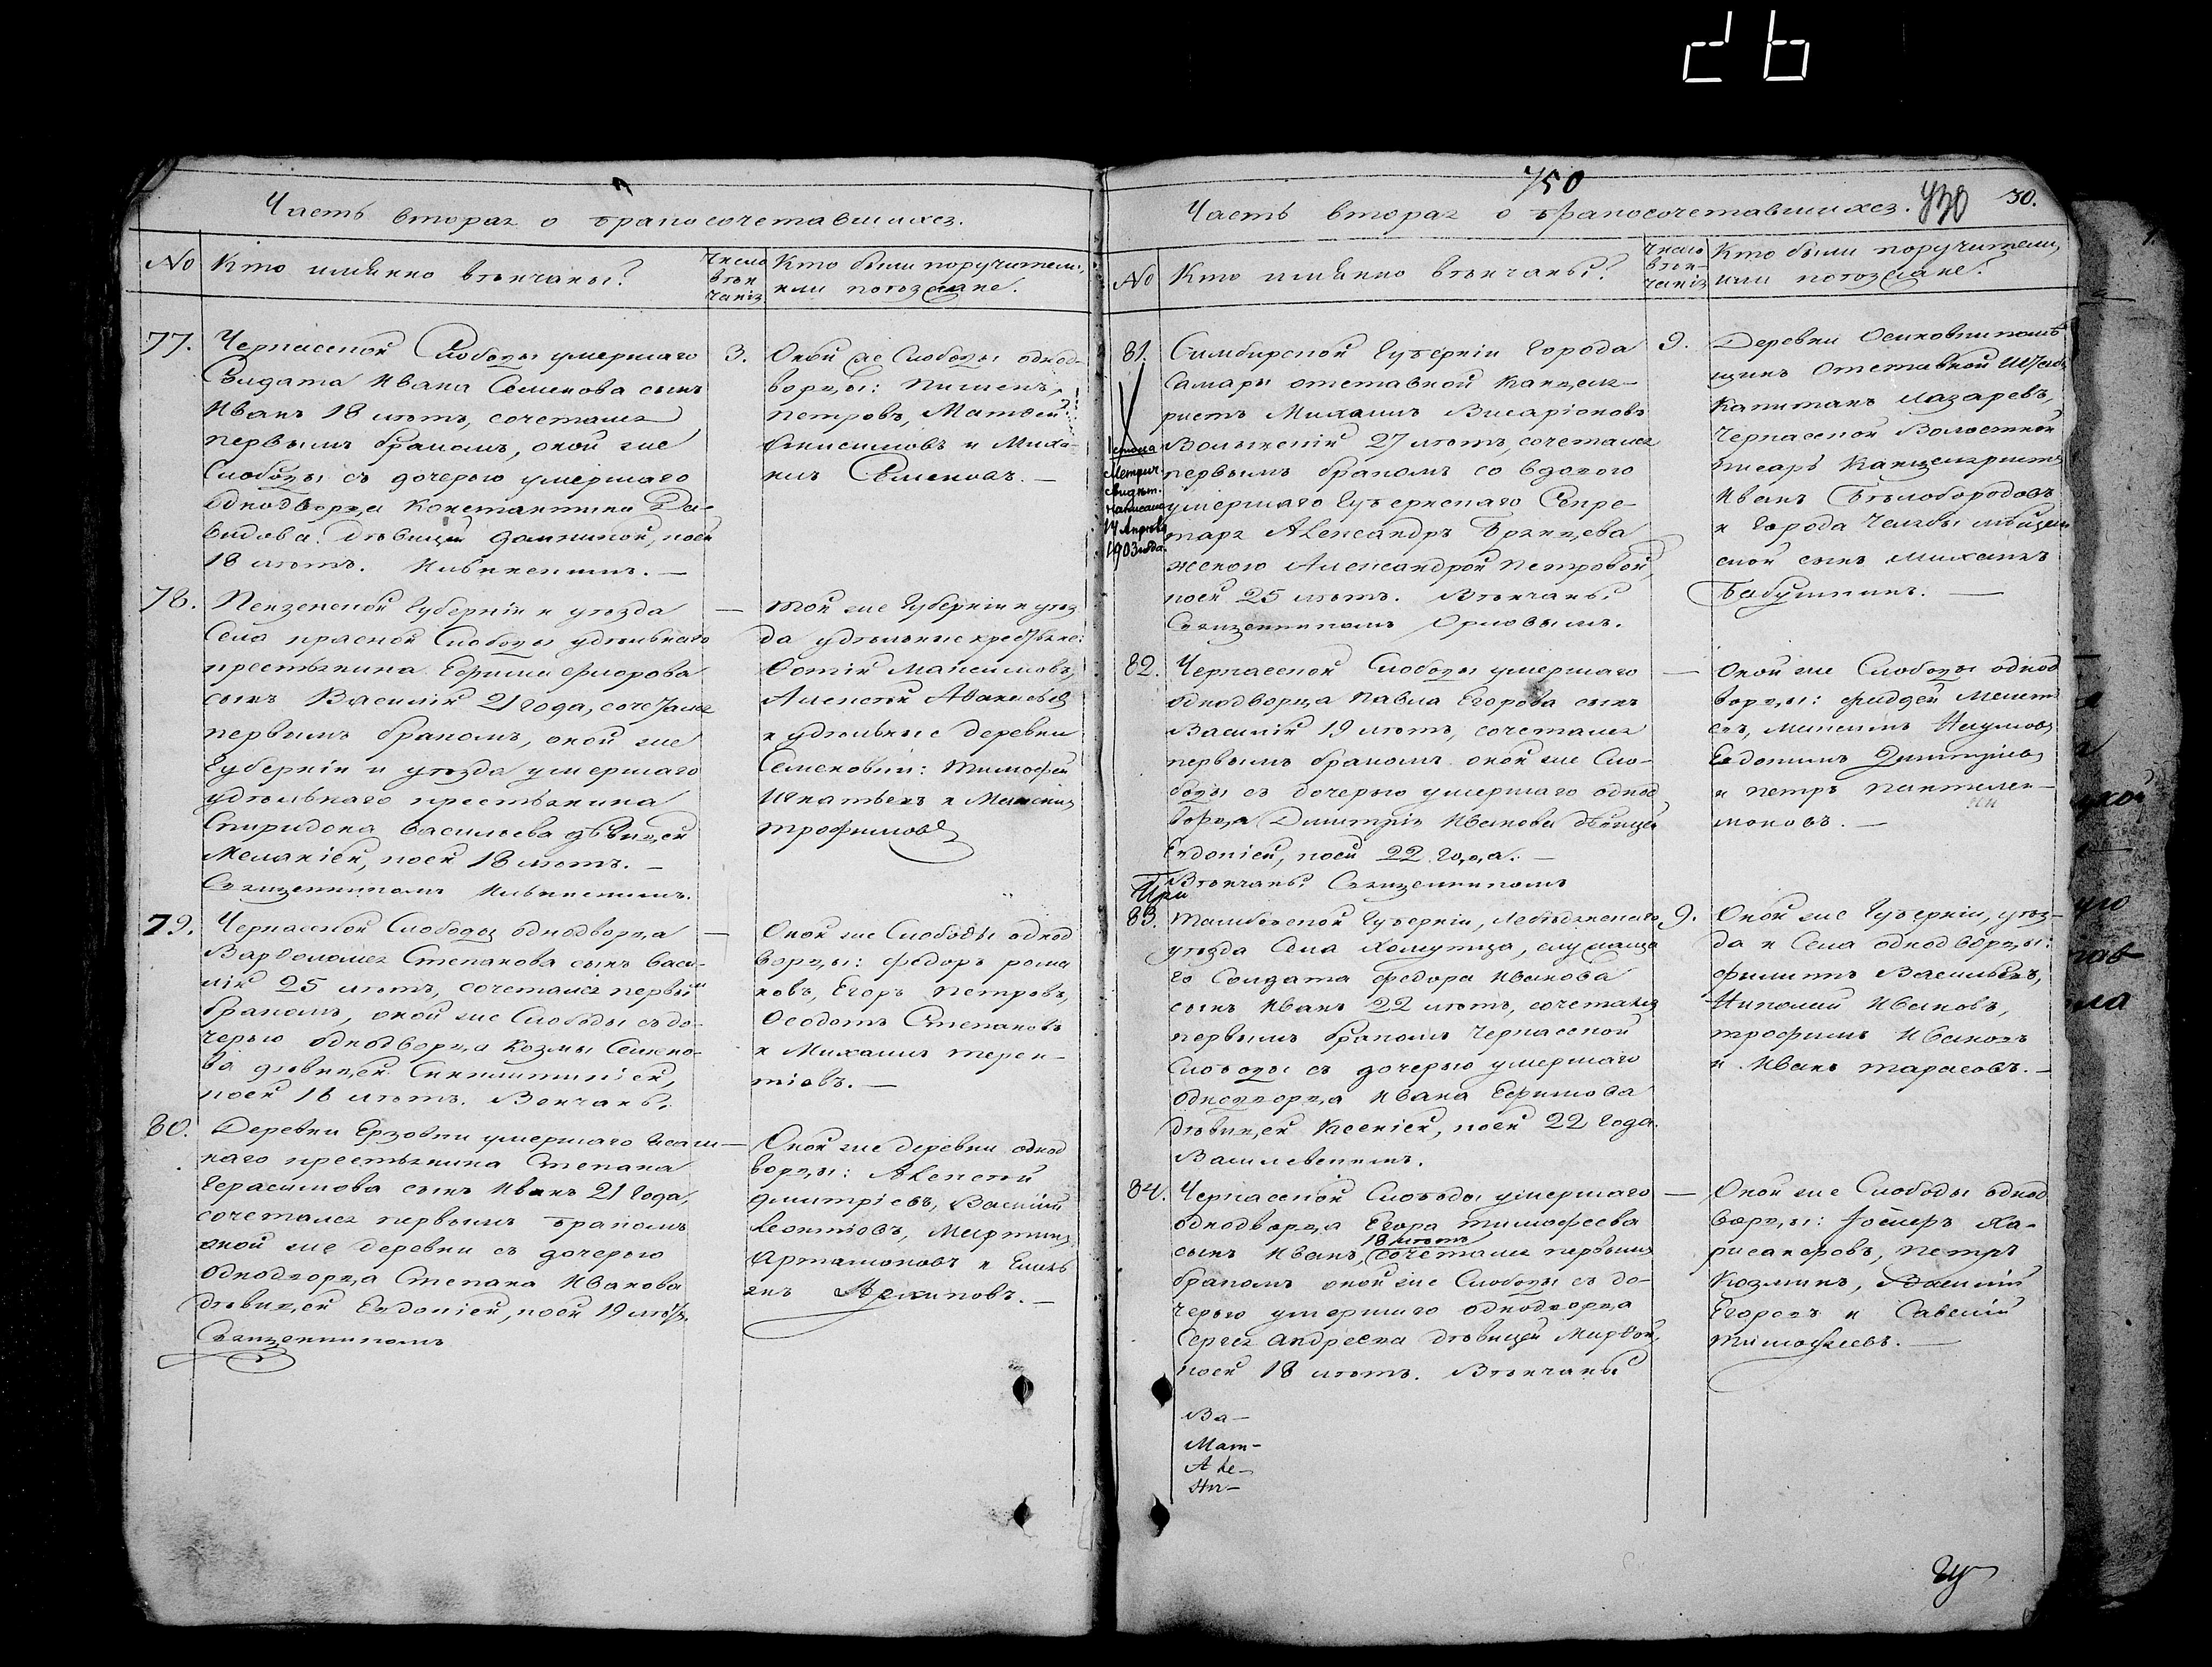 Часть вторая о бракосочетавшихся.
No
Кто имянно вѣнчаны?
Число
вѣн
чанія
Кто были поручители,
или поѣзжане.
77.
Черкасской Слободы умершаго
Солдата Ивана Семенова сынъ
Иванъ 18 лѣтъ, сочетался
первымъ бракомъ, оной же
Слободы съ дочерью умершаго
однодворца Константина Да-
видова девицей Домникой, коей
18 лѣтъ.
3.
Оной же Слободы однод-
ворцы: Пименъ
Петровъ, Матвей
Анисимовъ и Миха-
илъ Семеновъ. —
78.
Пензенской Губерніи и уѣзда
Села Краской Слободы удѣльнаго
крестьянина Ефима Флорова
сынъ Василій 21 года, сочетался
первымъ бракомъ, оной же
Губерніи и уѣзда умершаго
удѣльнаго крестьянина
Спиридона Васильева дѣвицей
Меланіей, коей 18 лѣтъ. —
Священникомъ
—
той же Губерніи и уѣз
да удѣльные крестьяне:
Фотій Максимовъ,
Алексей
и удѣльные деревни
Семеновки: Тимофей
Игнатьевъ и
Трофимовъ
79.
Черкасской Слободы однодворца
Варфоломея Степанова сынъ Васи-
лій 25 лѣтъ, сочетался первымъ
бракомъ, оной же Слободы съ до-
черью однодворца Козмы Семено-
ва девицей
коей 18 лѣтъ. Венчаны
—
Оной же Слободы однод
ворцы: Федоръ Рома
новъ, Егоръ Петровъ,
Феодотъ Степановъ
и Михаилъ Терен-
тіевъ. —
80.
Деревни Ерзовки умершаго
наго крестьянина Степана
Герасимова сынъ Иванъ 21 года,
сочетался первымъ бракомъ
оной же деревни съ дочерью
однодворца Степана Иванова
девицей Евдокіей, коей 19 лѣтъ.
Священникомъ
—
Оной же деревни однод
ворцы: Алексей
Дмитріевъ, Василій
Леонтіовъ, Мартинъ
Артамоновъ и Емель
янъ Архиповъ. —
750
Часть вторая о бракосочетавшихся.
430
30.
No
Кто имянно вѣнчаны?
Число
вѣн-
чанія
Кто были поручители,
или поѣзжане.
81.
Симбирской Губерніи Города
Самары отставной Канцеля-
ристъ Михаилъ Висаріоновъ
Волынскій 27 лѣтъ, сочетался
первымъ бракомъ со вдовою
умершаго Губернскаго Секре-
таря Александръ
женою Александрой Петровой,
коей 25 лѣтъ. Вѣнчаны
Священникомъ Орловымъ.
Метрич.
свидѣт.
написано
17 Апреля
1903 года.
9.
Деревни Осиновки помѣ
щикъ Отставной Штабсъ
Капитанъ Лазаревъ,
Черкасской Волостной
писарь Канцеляристъ
Иванъ Белобородовъ
и Города Челябы мѣщан
ской сынъ Михаилъ
Бабушкинъ. —
82.
Черкасской Слободы умершаго
однодворца Павла Егорова сынъ
Василій 19 лѣтъ, сочетался
первымъ бракомъ оной же Сло-
боды съ дочерью умершаго однод
ворца Димитрія Иванова дѣвицей
Евдокіей, коей 22 года. —
Вѣнчаны Священникомъ
—
Оной же Слободы однод
ворцы: Фаддей
Наумовъ
Евдокимъ Димитріевъ
и Петръ Пантелей-
моновъ. —
83.
Тамбовской Губерніи, Лебедянскаго
уѣзда Села Хомутца, служаща
го Солдата Федора Иванова
сынъ Иванъ 22 лѣтъ, сочетался
первымъ бракомъ Черкасской
Слободы съ дочерью умершаго
однодворца Ивана Ефимова
дѣвицей Ксеніей, коей 22 года.
9.
Оной же Губерніи, уѣз-
да и Села однодворцы:
Филиппъ Васильевъ,
Николай Ивановъ,
Трофимъ Ивановъ
и Иванъ Тарасовъ. —
84.
Черкасской Слободы умершаго
однодворца Егора Тимофеева
18 лѣтъ
сынъ Иванъ, сочетался первымъ
бракомъ оной же Слободы съ до-
черью умершаго однодворца
Сергея Андреева дѣвицей Марфой,
коей 18 лѣтъ. Вѣнчаны
—
Оной же Слободы однод
ворцы:
Петръ
Козминъ, Василій
Егоровъ и Савелій
Тимофеевъ. —
Ва-
Мат-
Але-
Ни-